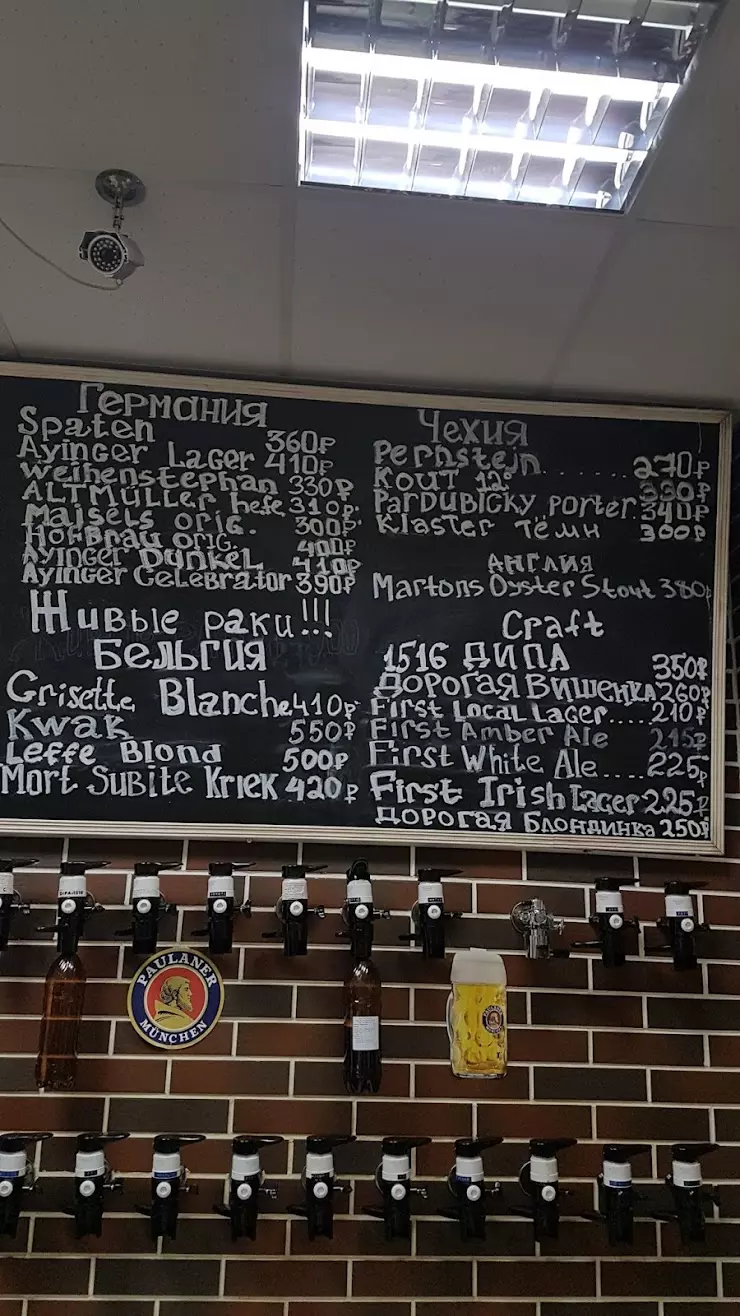 Германия
Spaten 360₽
Ayinger Lager 410₽
Weihenstephan 330₽
ALTMÜller hefe 310₽
Maisels orig. 300₽
Hofbräu orig. 400₽
Ayinger Dunkel 410₽
Ayinger Celebrator 390₽
Живые раки!!!
Бельгия
Grisette Blanche 410₽
Kwak 550₽
Leffe Blond 500₽
Mort Subite Kriek 420₽
Чехия
Pernstejn ........ 270₽
Kout 12° 330₽
Pardubicky porter. 340₽
Klaster темн 300₽
Англия
Martons Oyster Stout 380₽
Craft
1516 ДИПА 350₽
Дорогая Вишенка 260₽
First Local Lager..... 210₽
First Amber Ale 215₽
First White Ale.... 225₽
First Irish Lager 225₽
Дорогая Блондинка 250₽
PAULANER
MÜNCHEN